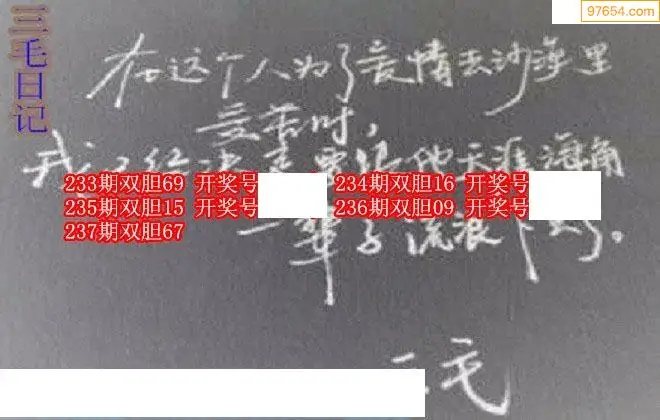 97654.com
三毛日记
在这个人为了爱情去沙漠里
受苦时,
我已经决定要跟他天涯海角
233期双胆69 开奖号 234期双胆16 开奖号
235期双胆15 开奖号 236期双胆09 开奖号
237期双胆67
一辈子流浪下去了。
三毛